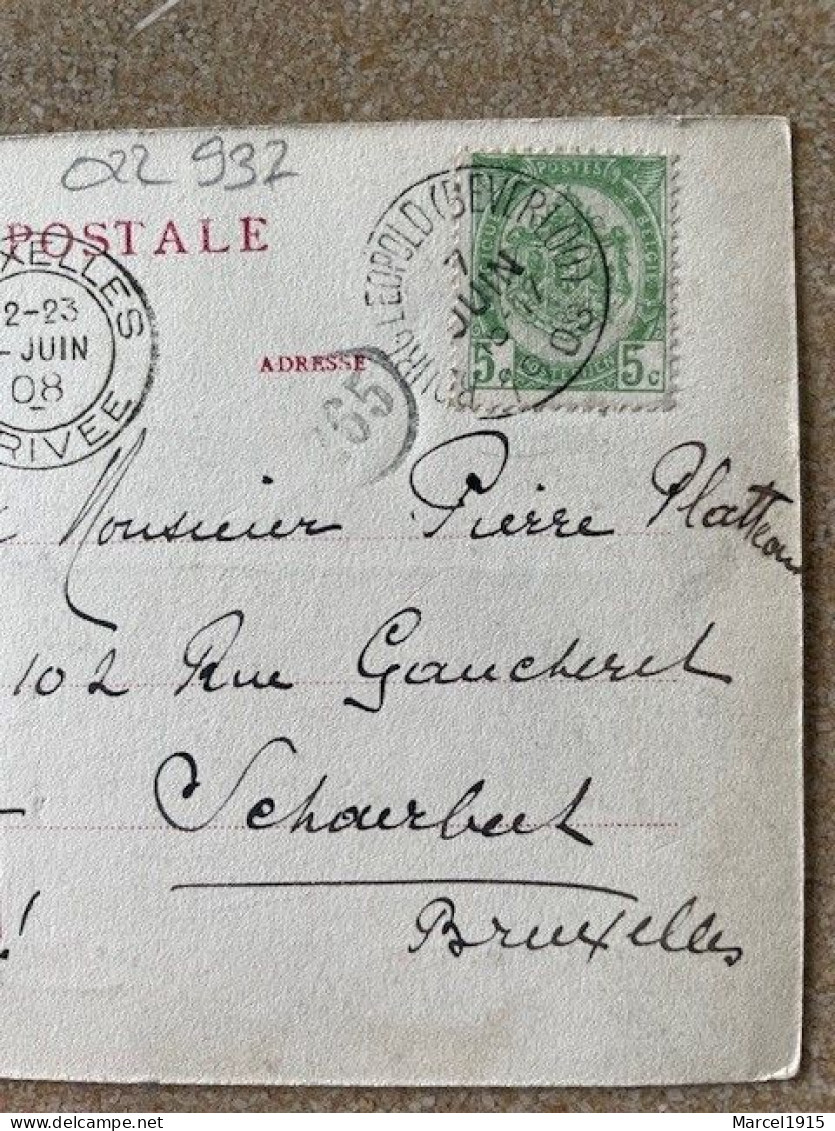 022 937
POSTALE
XELLES
2-23
- JUIN
08
RIVEE
BOURG-LÉOPOLD (BEVERLOO)
7
JUIN
08
POSTES
5c 5c
ADRESSE
Monsieur Pierre Platteau
102 Rue Gaucheret
Schaerbeek
Bruxelles
!
Marcel1915